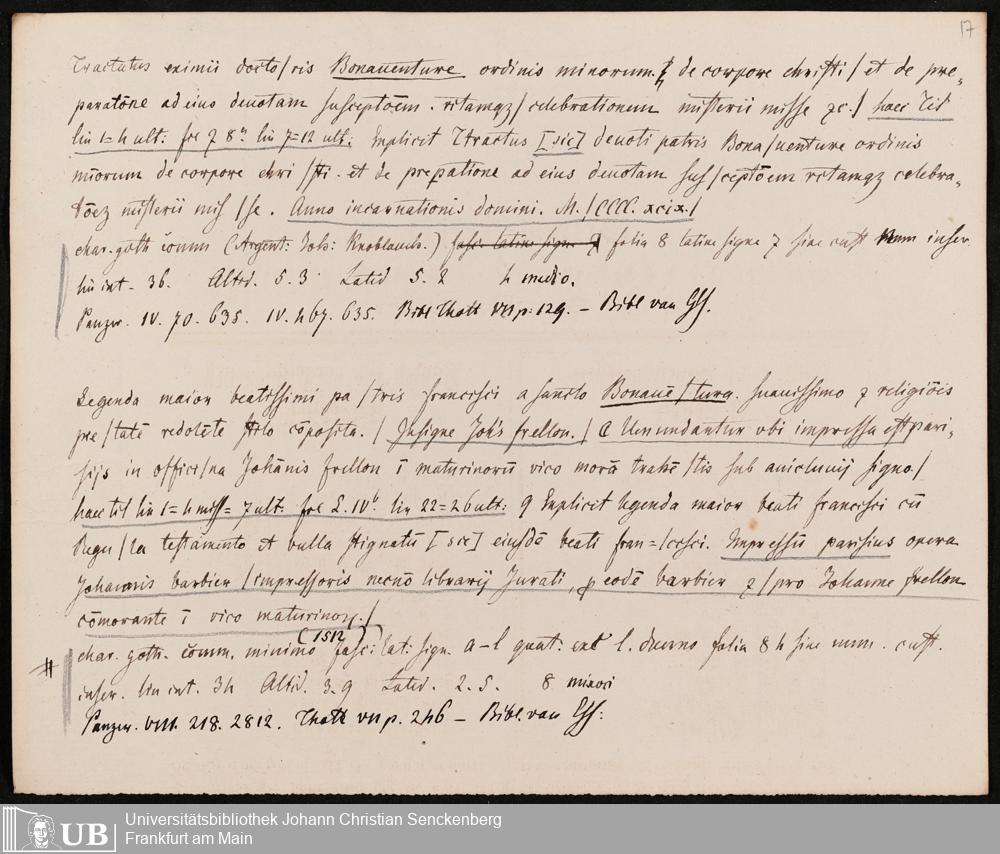 17
Tractatus eximii docto/ris Bonauenture ordinis minorum. de corpore christi / et de pre=
paratōne ad eius deuotam susceptōem . ritamqz / celebrationem misterii misse zc. / haec Tit
lin 1=4 ult: fol 8 lin 7=12 ult: Explicit Ttractus [sic] deuoti patris Bona/uenture ordinis
mīorum de corpore chri /sti . et de prepatione ad eius deuotam sus/ceptōem ritamqz celebra=
tōez misterii mis /se . Anno incarnationis domini . M. / CCCC. xcix. /
char. goth comm (Argent: Joh: Knoblauch.) folia 8 latine signa 7 sine cust num inser.
lin int - 36. Altid . 5. 3 Latid 5. 2 4 medio.
Panzer. IV. 70. 635. IV. 467. 635. Bibl Thott VII p. 129. – Bibl van Ess.
Legenda maior beatissimi pa /tris francisci a sancto Bonauē /tura. suauissimo z religiōis
pie /tatē redolēte stilo cōposita. / Insigne Johis frellon. / C Uenundantur vbi impressa est pari=
sijs in offici/na Johānis frellon ī maturinorū vico morā trahē /tis sub auicluuij signo. /
haec tit lin 1=4 miss= 7 ult. fol L. IVb lin 22=26 ult: Explicit legenda maior beati francisci cū
Regu /la testamento et bulla stignatū [sic] eiusdē beati fran=/cisci. Impressū parisius opera
Johannis barbier / impressoris necnō librarij Jurati, p eodē barbier z / pro Johanne frellon
cōmorante ī vico maturinor. /
(1512)
char. goth. comm. minimo fasc: lat: sign. a – l quat: ext l. duerno folia 84 sine num . cust.
inser. lin int. 34 Altid. 3. 9 Latid. 2. 5. 8 minori
Panzer. VIII. 218. 2812. Thott VII p. 246 – Bibl. van Ess:
UB
Universitätsbibliothek Johann Christian Senckenberg
Frankfurt am Main